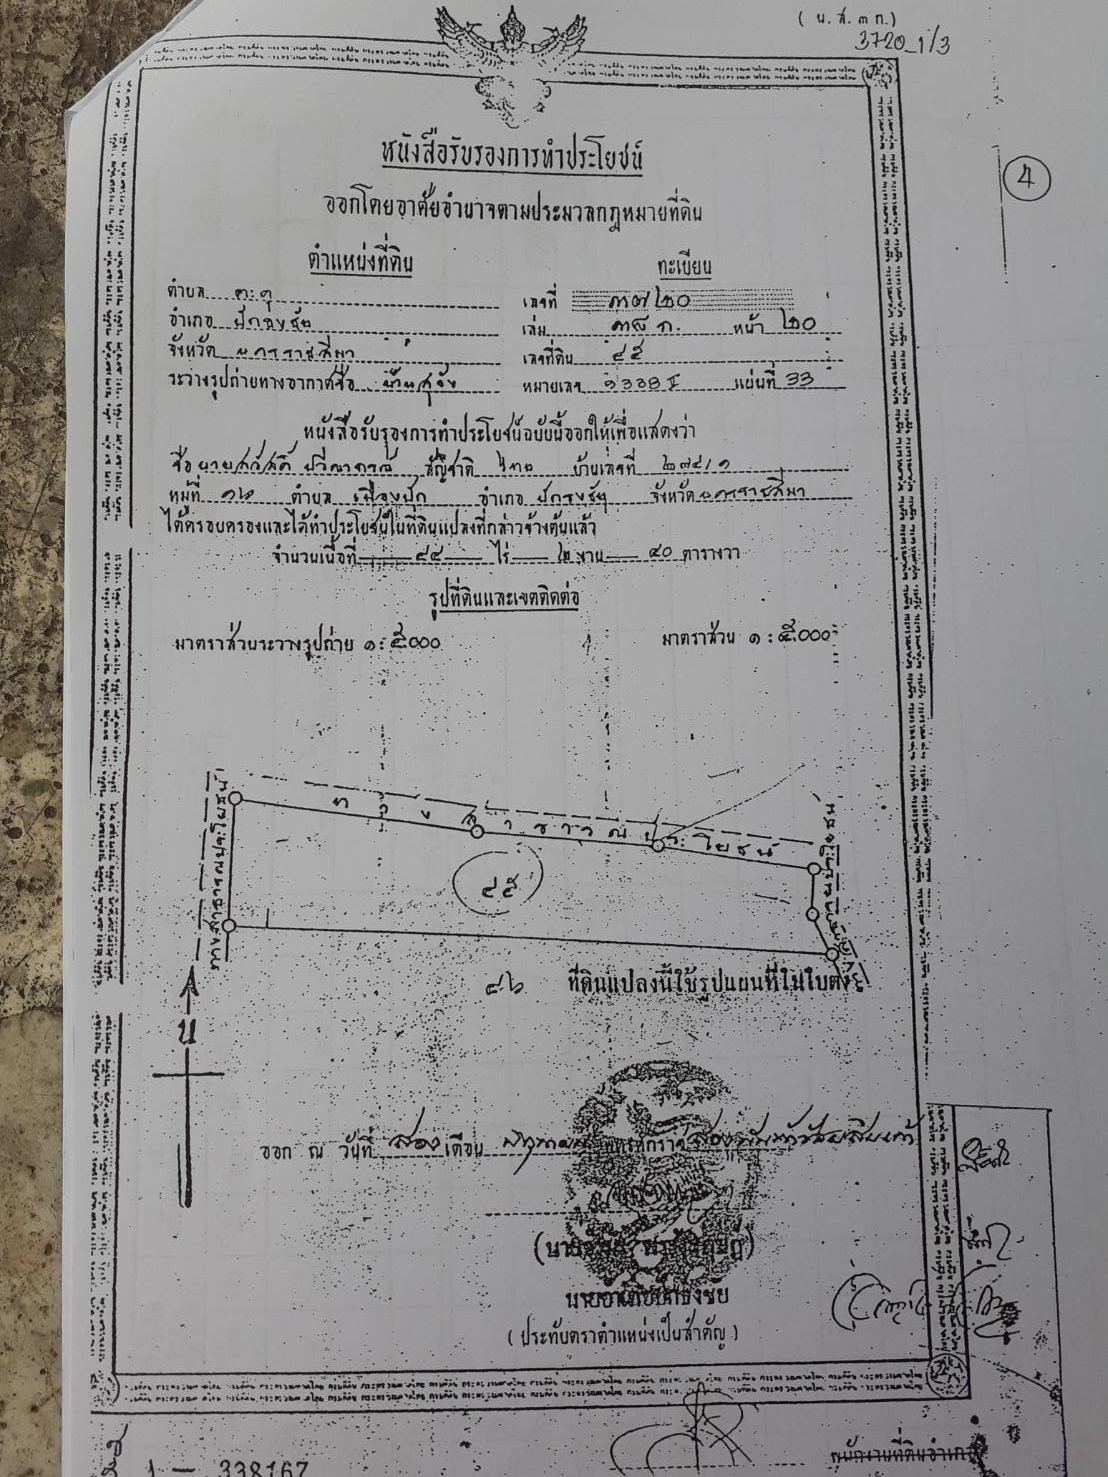 ( น. ส. ๓ ก.)
3720_1/3
4
หนังสือรับรองการทำประโยชน์
ออกโดยอาศัยอำนาจตามประมวลกฎหมายที่ดิน
ตำแหน่งที่ดิน ทะเบียน
ตำบล ตะคุ เลขที่ ๓๗๒๐
อำเภอ ปักธงชัย เล่ม ๓๘ ก. หน้า ๒๐
จังหวัด นครราชสีมา เลขที่ดิน ๔๕
ระวางรูปถ่ายทางอากาศชื่อ หมายเลข ๕๓๓๘ I แผ่นที่ 33
หนังสือรับรองการทำประโยชน์ฉบับนี้ออกให้เพื่อแสดงว่า
ชื่อ นายสวัสดิ์ สัญชาติ ไทย บ้านเลขที่ ๒๗๔/๑
หมู่ที่ ๑๒ ตำบล เมืองปัก อำเภอ ปักธงชัย จังหวัด นครราชสีมา
ได้ครอบครองและได้ทำประโยชน์ในที่ดินแปลงที่กล่าวข้างต้นแล้ว
จำนวนเนื้อที่ ๔๔ ไร่ ๒ งาน ๔๐ ตารางวา
รูปที่ดินและเขตติดต่อ
มาตราส่วนระวางรูปถ่าย ๑ : ๕๐๐๐ มาตราส่วน ๑ : ๕๐๐๐
ทางสาธารณประโยชน์
ทางสาธารณประโยชน์
๔๕
๔๖ ที่ดินแปลงนี้ใช้รูปแผนที่ในใบต่อ
น
ออก ณ วันที่ สอง เดือน พุทธศักราช
นายอำเภอปักธงชัย
( ประทับตราตำแหน่งเป็นสำคัญ )
พนักงานที่ดินอำเภอ
338167